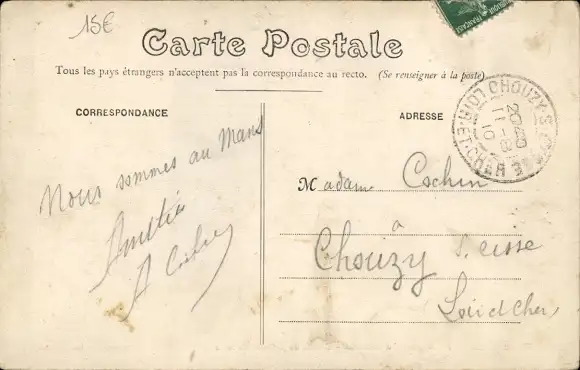 15€
Carte Postale
Tous les pays étrangers n'acceptent pas la correspondance au recto. (Se renseigner à la poste)
CORRESPONDANCE
Nous sommes au Mans
Amitiés
A
ADRESSE
Madame Cochin
à
Chouzy s. cisse
Loir et Cher
CHOUZY-S-CISSE
LOIR-ET-CHER
20 40
11 -8
10